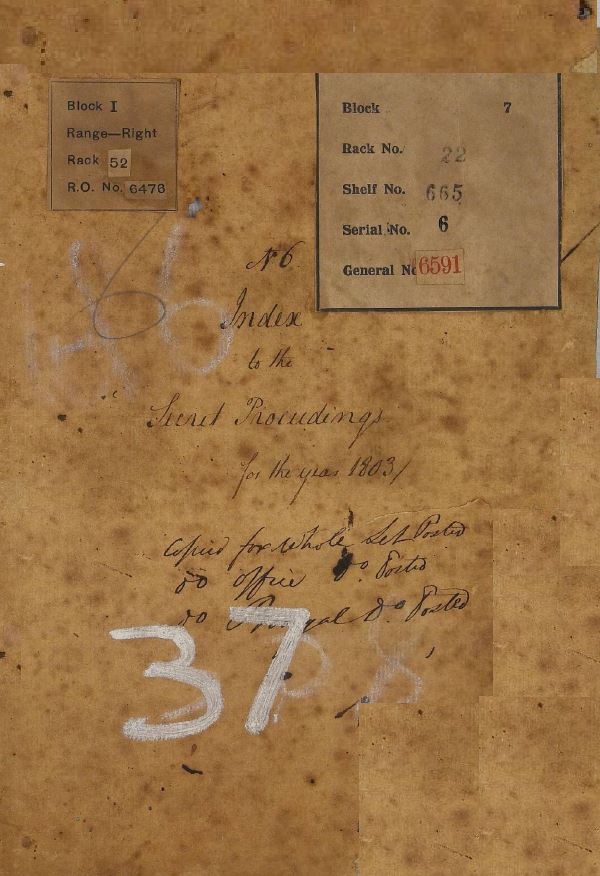 Block I
Range—Right
Rack 52
R.O. No. 6476
Block 7
Rack No. 22
Shelf No. 665
Serial No. 6
General No 6591
No 6
Index
to the
Secret Proceedings
for the year 1803/
Copied for Whole Set Posted
Do Office Do Posted
Do Do Posted
37